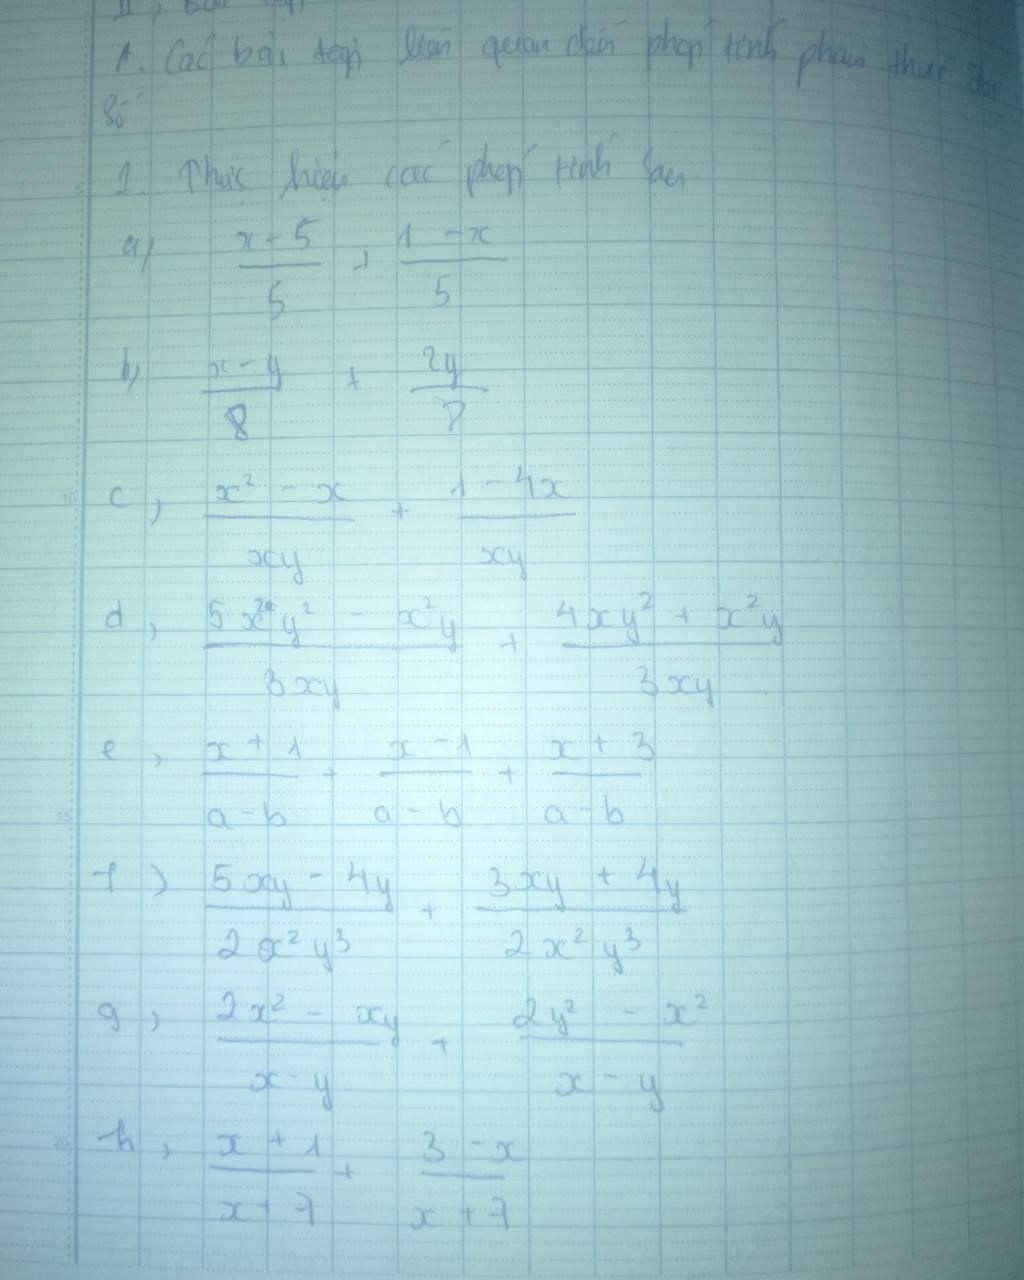 II, Bài tập
A. Các bài tập liên quan đến phép tính phân thức đại
số
1. Thực hiện các phép tính sau.
a) (x - 5)/5 + (1 - x)/5
b) (x - y)/8 + 2y/8
c, (x² - x)/xy + (1 - 4x)/xy
d, (5x²y² - x²y)/3xy + (4xy² + x²y)/3xy
e, (x + 1)/(a - b) + (x - 1)/(a - b) + (x + 3)/(a - b)
f) (5xy - 4y)/2x²y³ + (3xy + 4y)/2x²y³
g, (2x² - xy)/(x - y) + (2y² - x²)/(x - y)
h, (x + 1)/(x + 7) + (3 - x)/(x + 7)